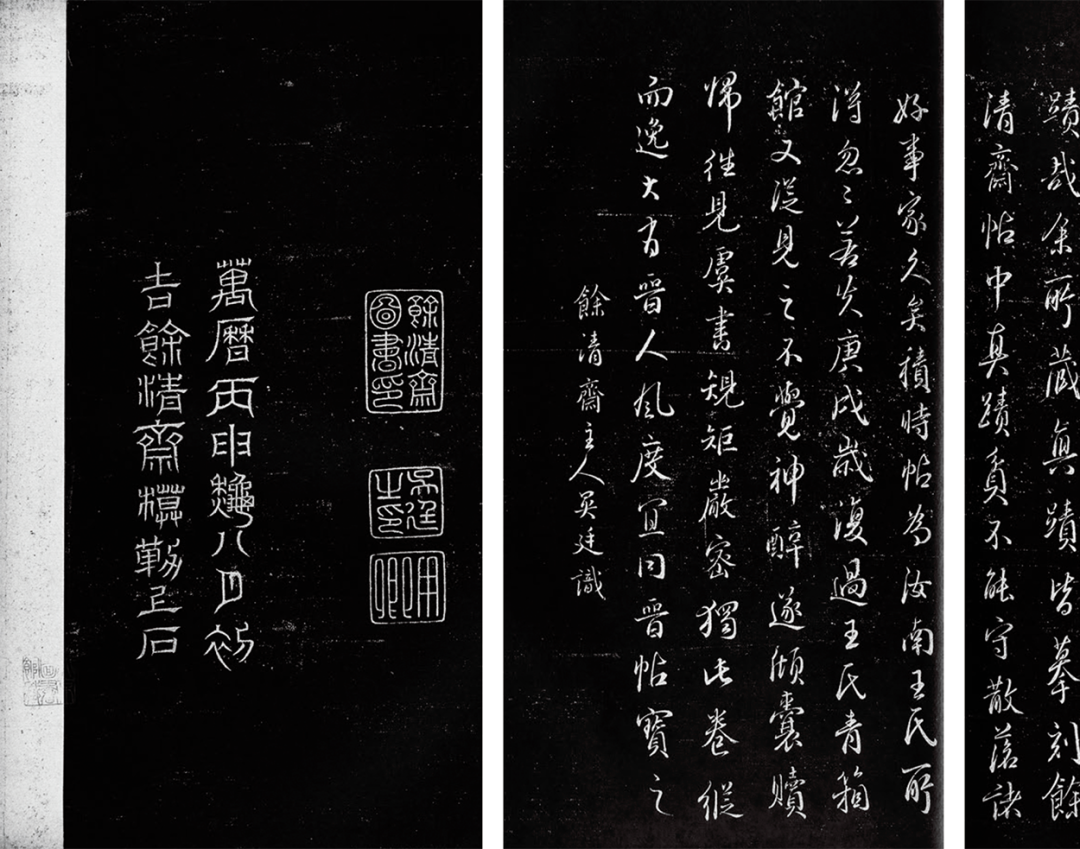 蹟哉余所藏真蹟皆摹刻餘
清齋帖中真蹟貧不能守散落諸
好事家久矣積時帖為汝南王氏所
得忽〻若失庚戌歲復過王氏青箱
館又從見之不覺神醉遂傾囊贖
歸往見虞書規矩嚴密獨此卷縱
而逸大有晉人風度宜同晉帖寶之
餘清齋主人吳廷識
餘清齋圖書印
吳廷之印
用卿
萬曆丙申龝八月初
吉餘清齋模勒上石